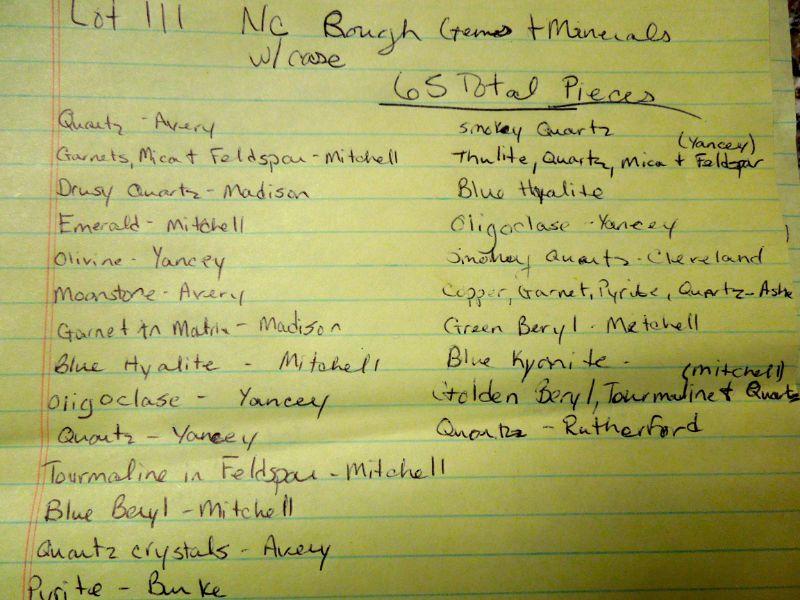 Lot 111 NC Rough Gems + Minerals
w/case
65 Total Pieces
Quartz - Avery
Garnets, Mica + Feldspar - Mitchell
Drusy Quartz - Madison
Emerald - Mitchell
Olivine - Yancey
Moonstone - Avery
Garnet in Matrix - Madison
Blue Hyalite - Mitchell
Oligoclase - Yancey
Quartz - Yancey
Tourmaline in Feldspar - Mitchell
Blue Beryl - Mitchell
Quartz crystals - Avery
Pyrite - Burke
Smokey Quartz
(Yancey)
Thulite, Quartz, Mica + Feldspar
Blue Hyalite
Oligoclase - Yancey
Smokey Quartz - Cleveland
Copper, Garnet, Pyrite, Quartz - Ashe
Green Beryl - Metchell
Blue Kyanite -
(Mitchell)
Golden Beryl, Tourmaline + Quartz
Quartz - Rutherford